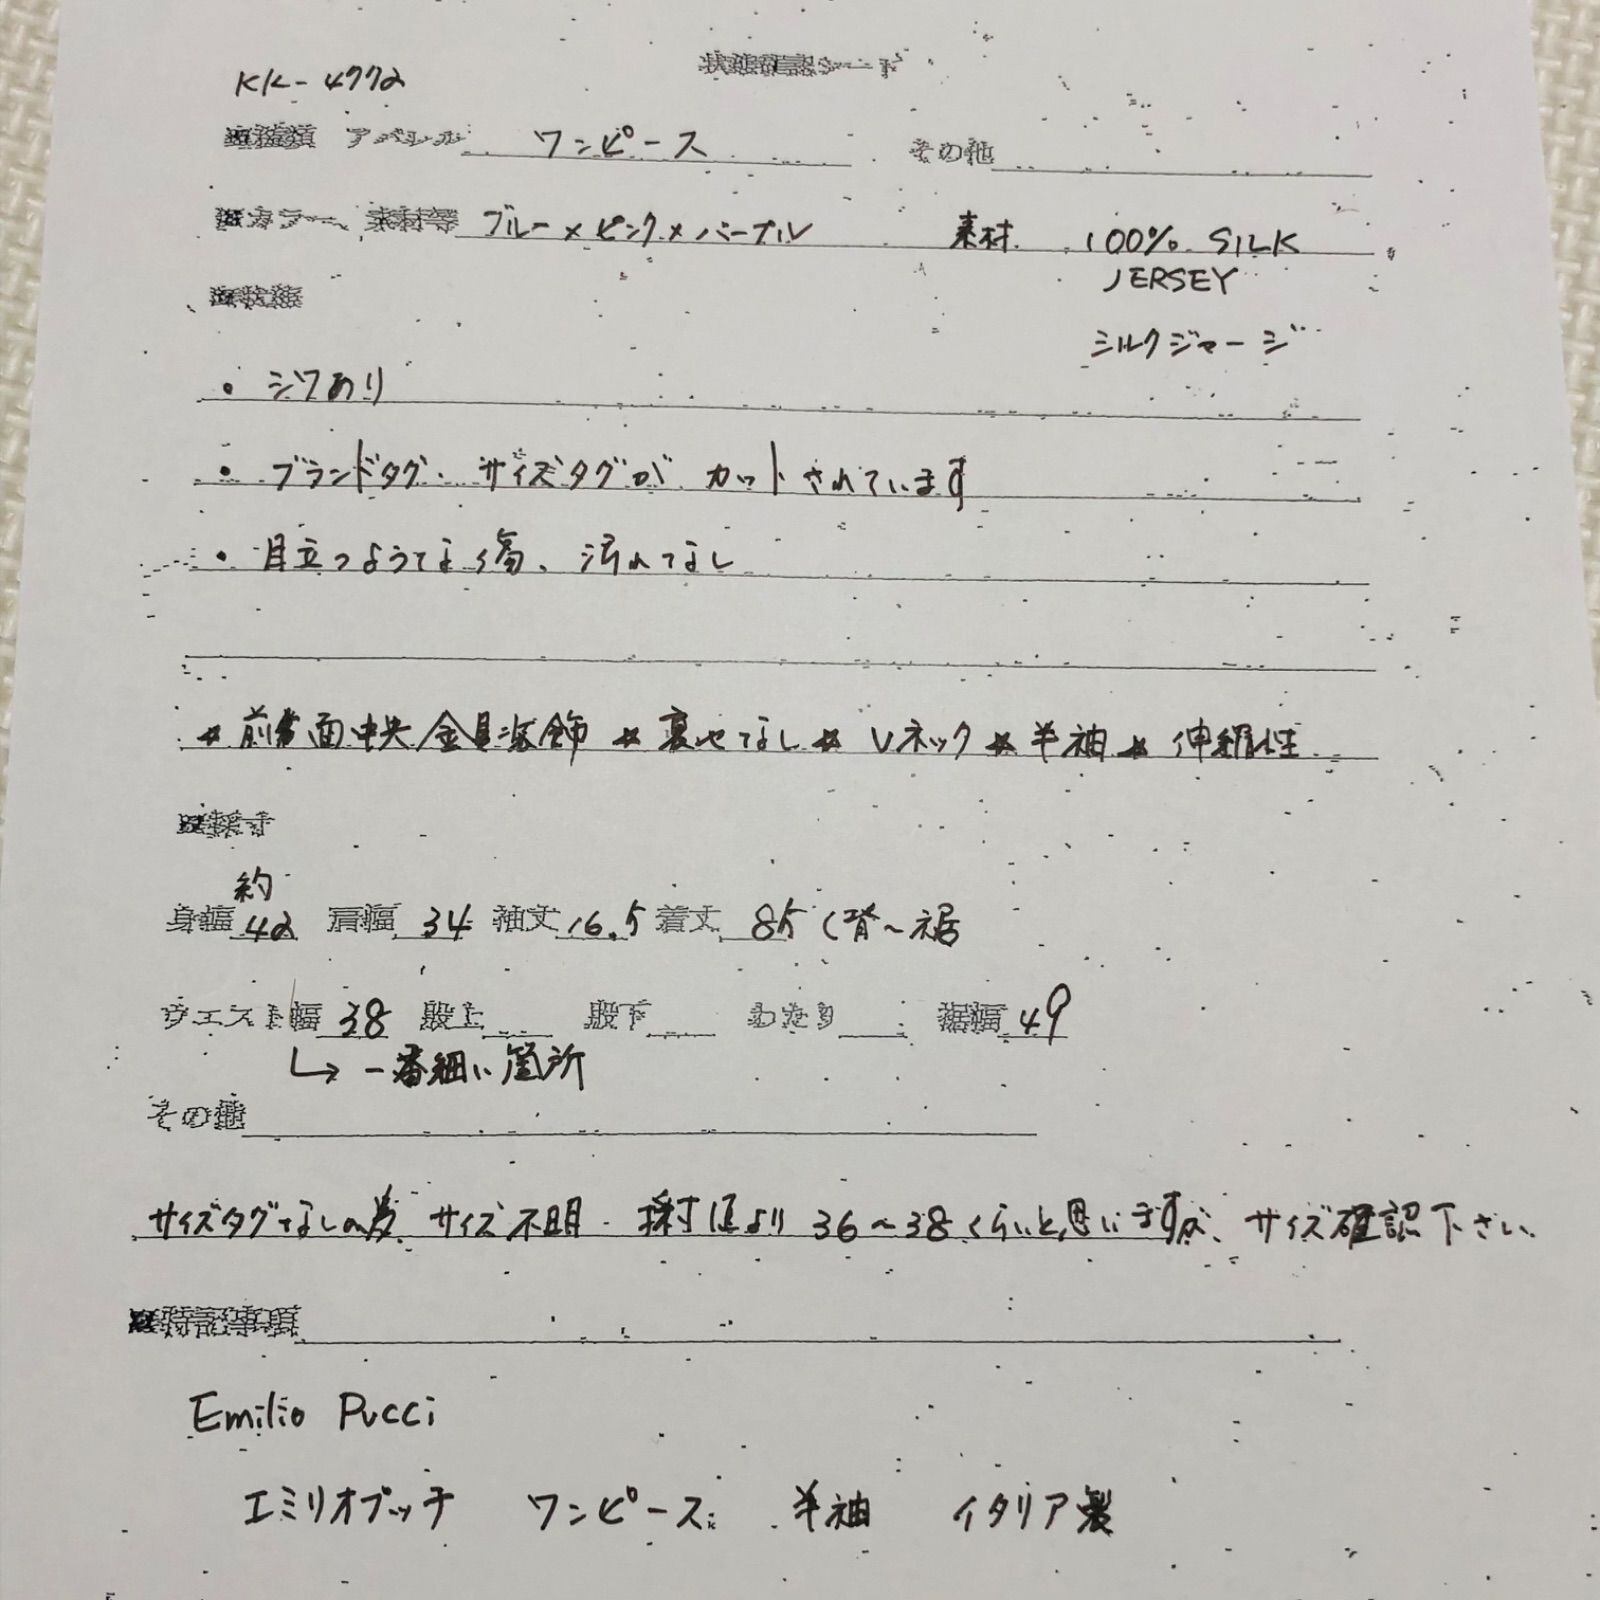 状態確認シート
KK-4772
■種類 アパレル ワンピース その他
■カラー、素材等 ブルー×ピンク×パープル 素材 100% SILK
JERSEY
■状態
シルクジャージ
・シワあり
・ブランドタグ、サイズタグが カットされています
・目立つような傷、汚れなし
★前面中央金具装飾 ★裏地なし★ Vネック★半袖★ 伸縮性
■採寸
約
身幅 42 肩幅 34 袖丈 16.5 着丈 85 (背〜裾
ウエスト幅 38 股上 股下 わたり 裾幅 49
↳ 一番細い箇所
その他
サイズタグなしの為 サイズ不明. 採寸値より 36〜38くらいと思いますが、サイズ確認下さい.
■特記事項
Emilio Pucci
エミリオプッチ ワンピース 半袖 イタリア製